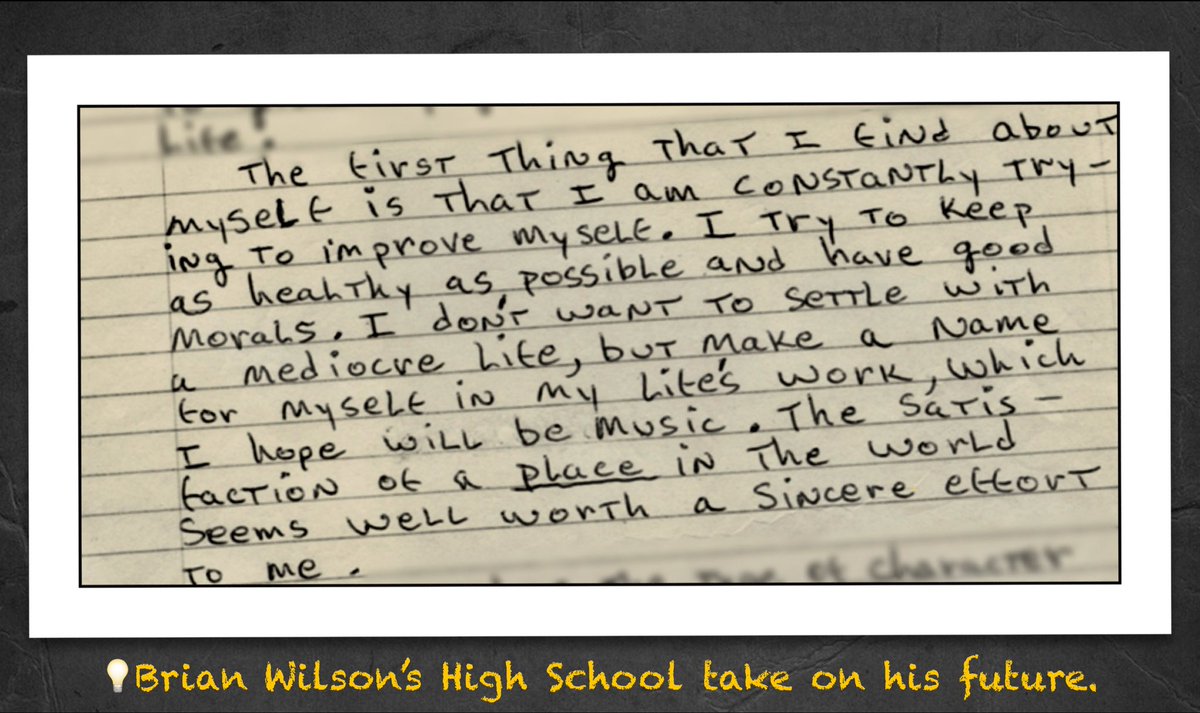 Life!
The first thing that I find about
myself is that I am constantly try-
ing to improve myself. I try to keep
as healthy as possible and have good
morals. I don't want to settle with
a mediocre life, but make a name
for myself in my life's work, which
I hope will be music. The satis-
faction of a place in the world
seems well worth a sincere effort
to me.
the type of character
💡Brian Wilson's High School take on his future.